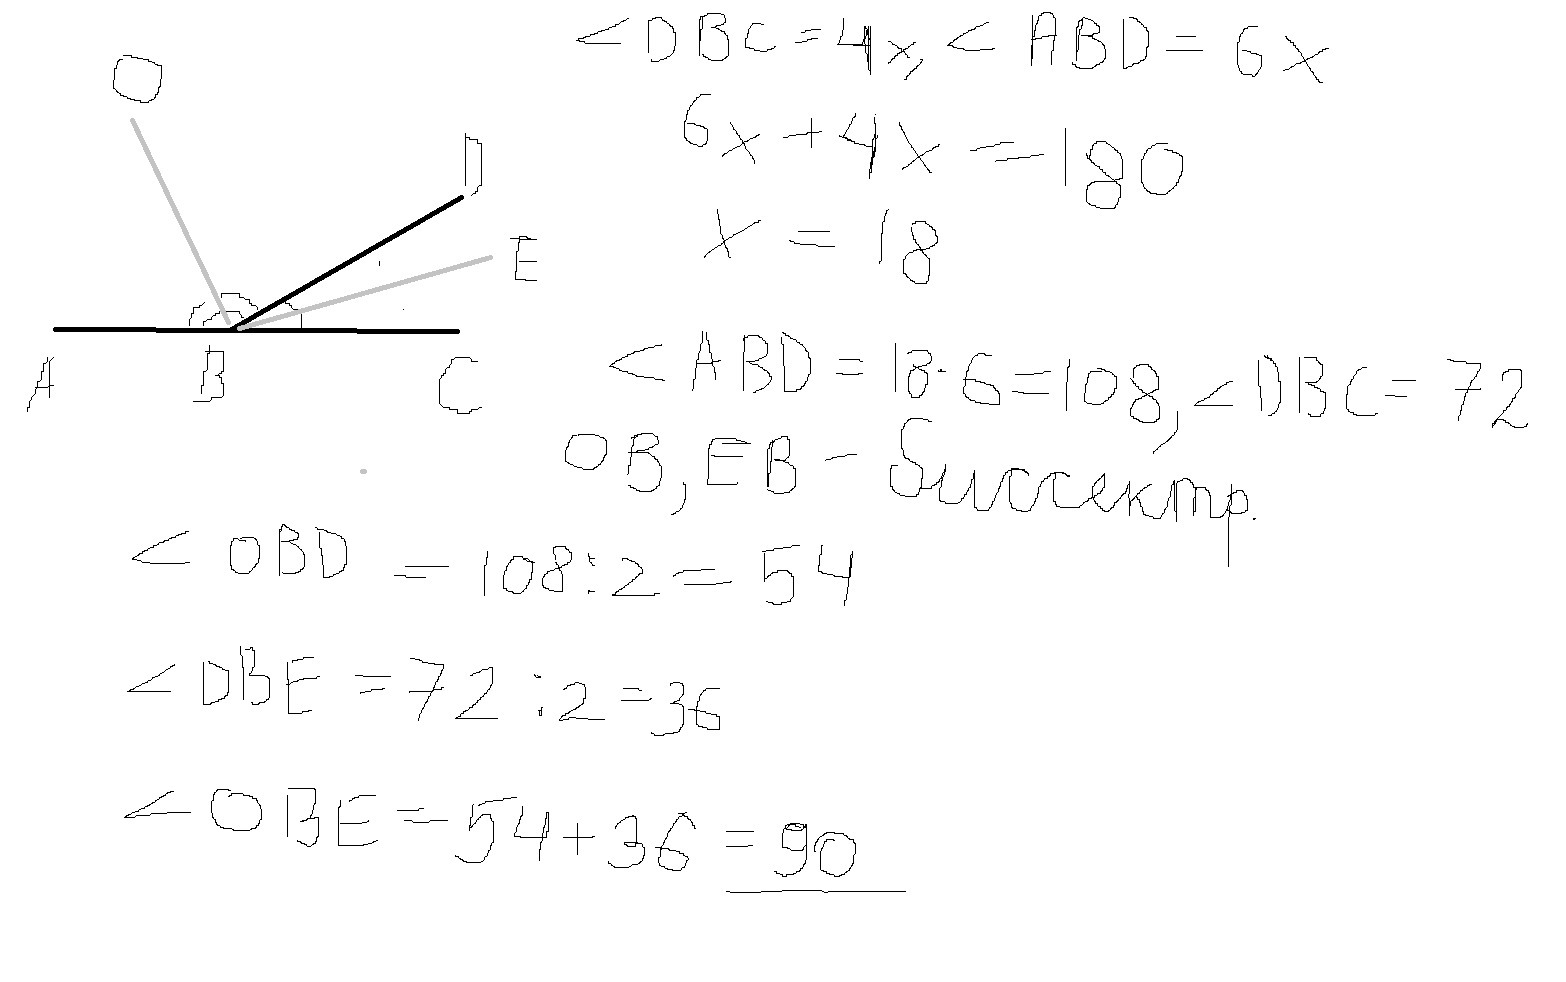 O
D
E
A B C
<DBC=4x, <ABD=6x
6x+4x=180
x=18
<ABD=18·6=108, <DBC=72
OB, EB - биссектр.
<OBD=108:2=54
<DBE=72:2=36
<OBE=54+36=90